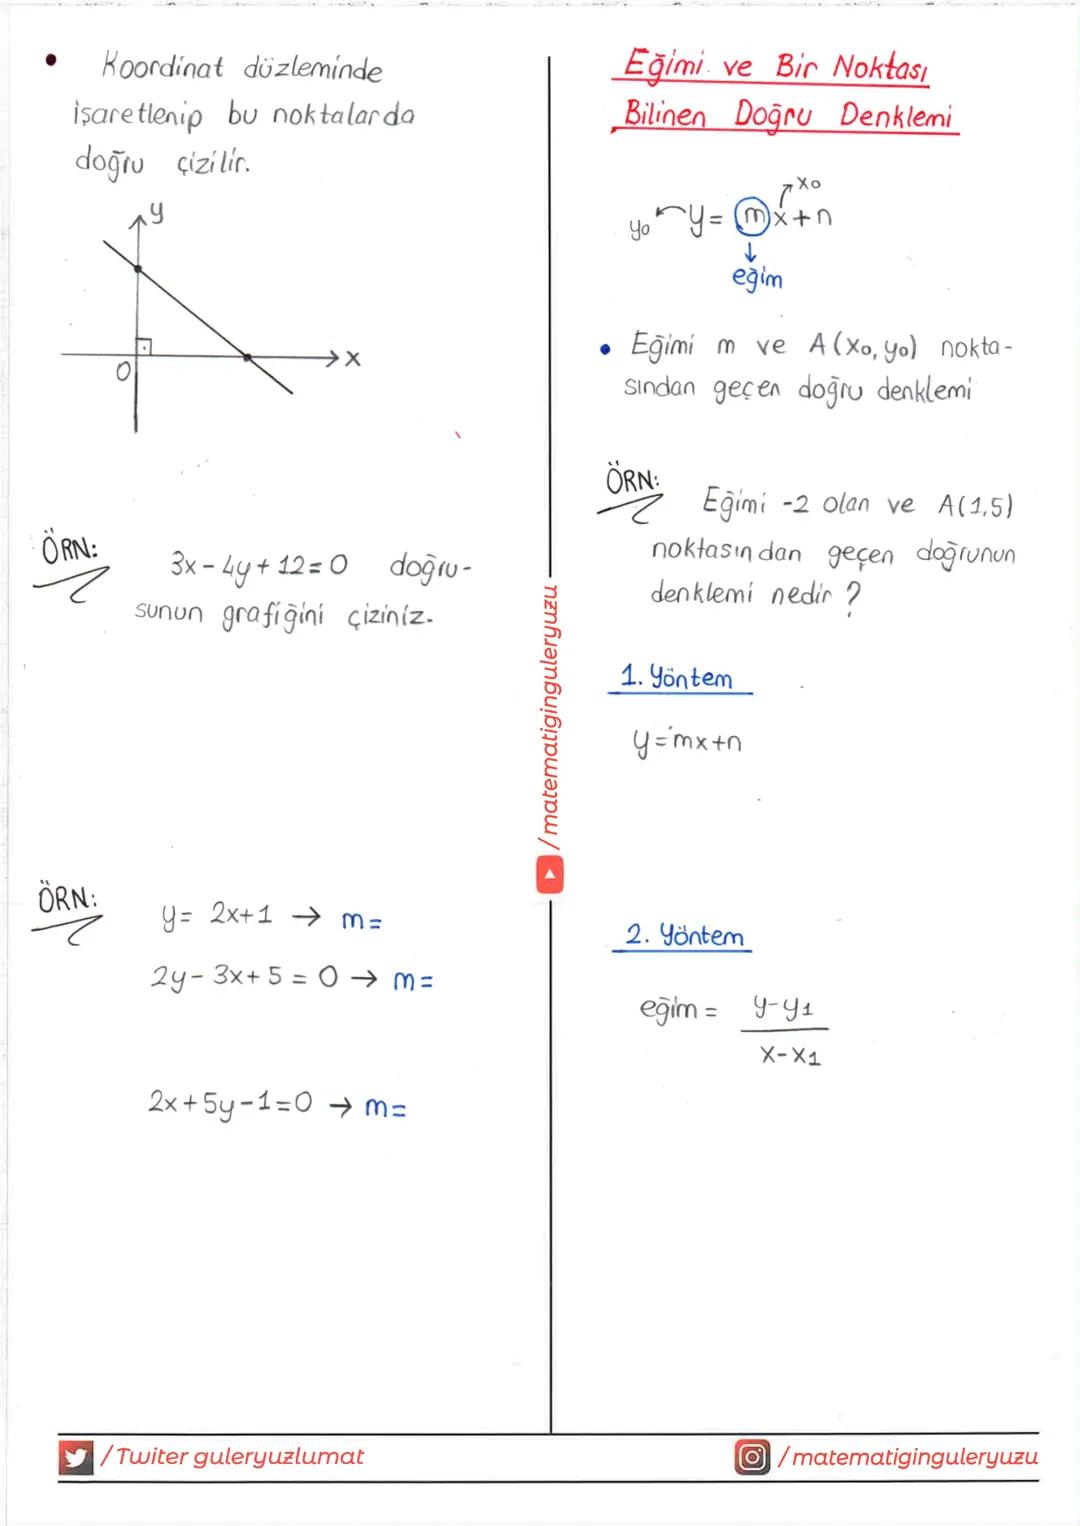 • Koordinat düzleminde
işaretlenip bu noktalarda
doğru çizilir.
y
x
O
ÖRN:
3x - 4y + 12 = 0 doğru-
sunun grafiğini çiziniz.
ÖRN:
y = 2x+1 → m =
2y - 3x + 5 = 0 → m =
2x + 5y - 1 = 0 → m =
/matematiginguleryuzu
Eğimi ve Bir Noktası
Bilinen Doğru Denklemi
x₀
y₀ y = mx + n
eğim
• Eğimi m ve A(x₀, y₀) nokta-
sından geçen doğru denklemi
ÖRN:
Eğimi -2 olan ve A(1,5)
noktasından geçen doğrunun
denklemi nedir ?
1. Yöntem
y = mx + n
2. Yöntem
eğim = y - y₁
x - x₁
/Twiter guleryuzlumat
/matematiginguleryuzu